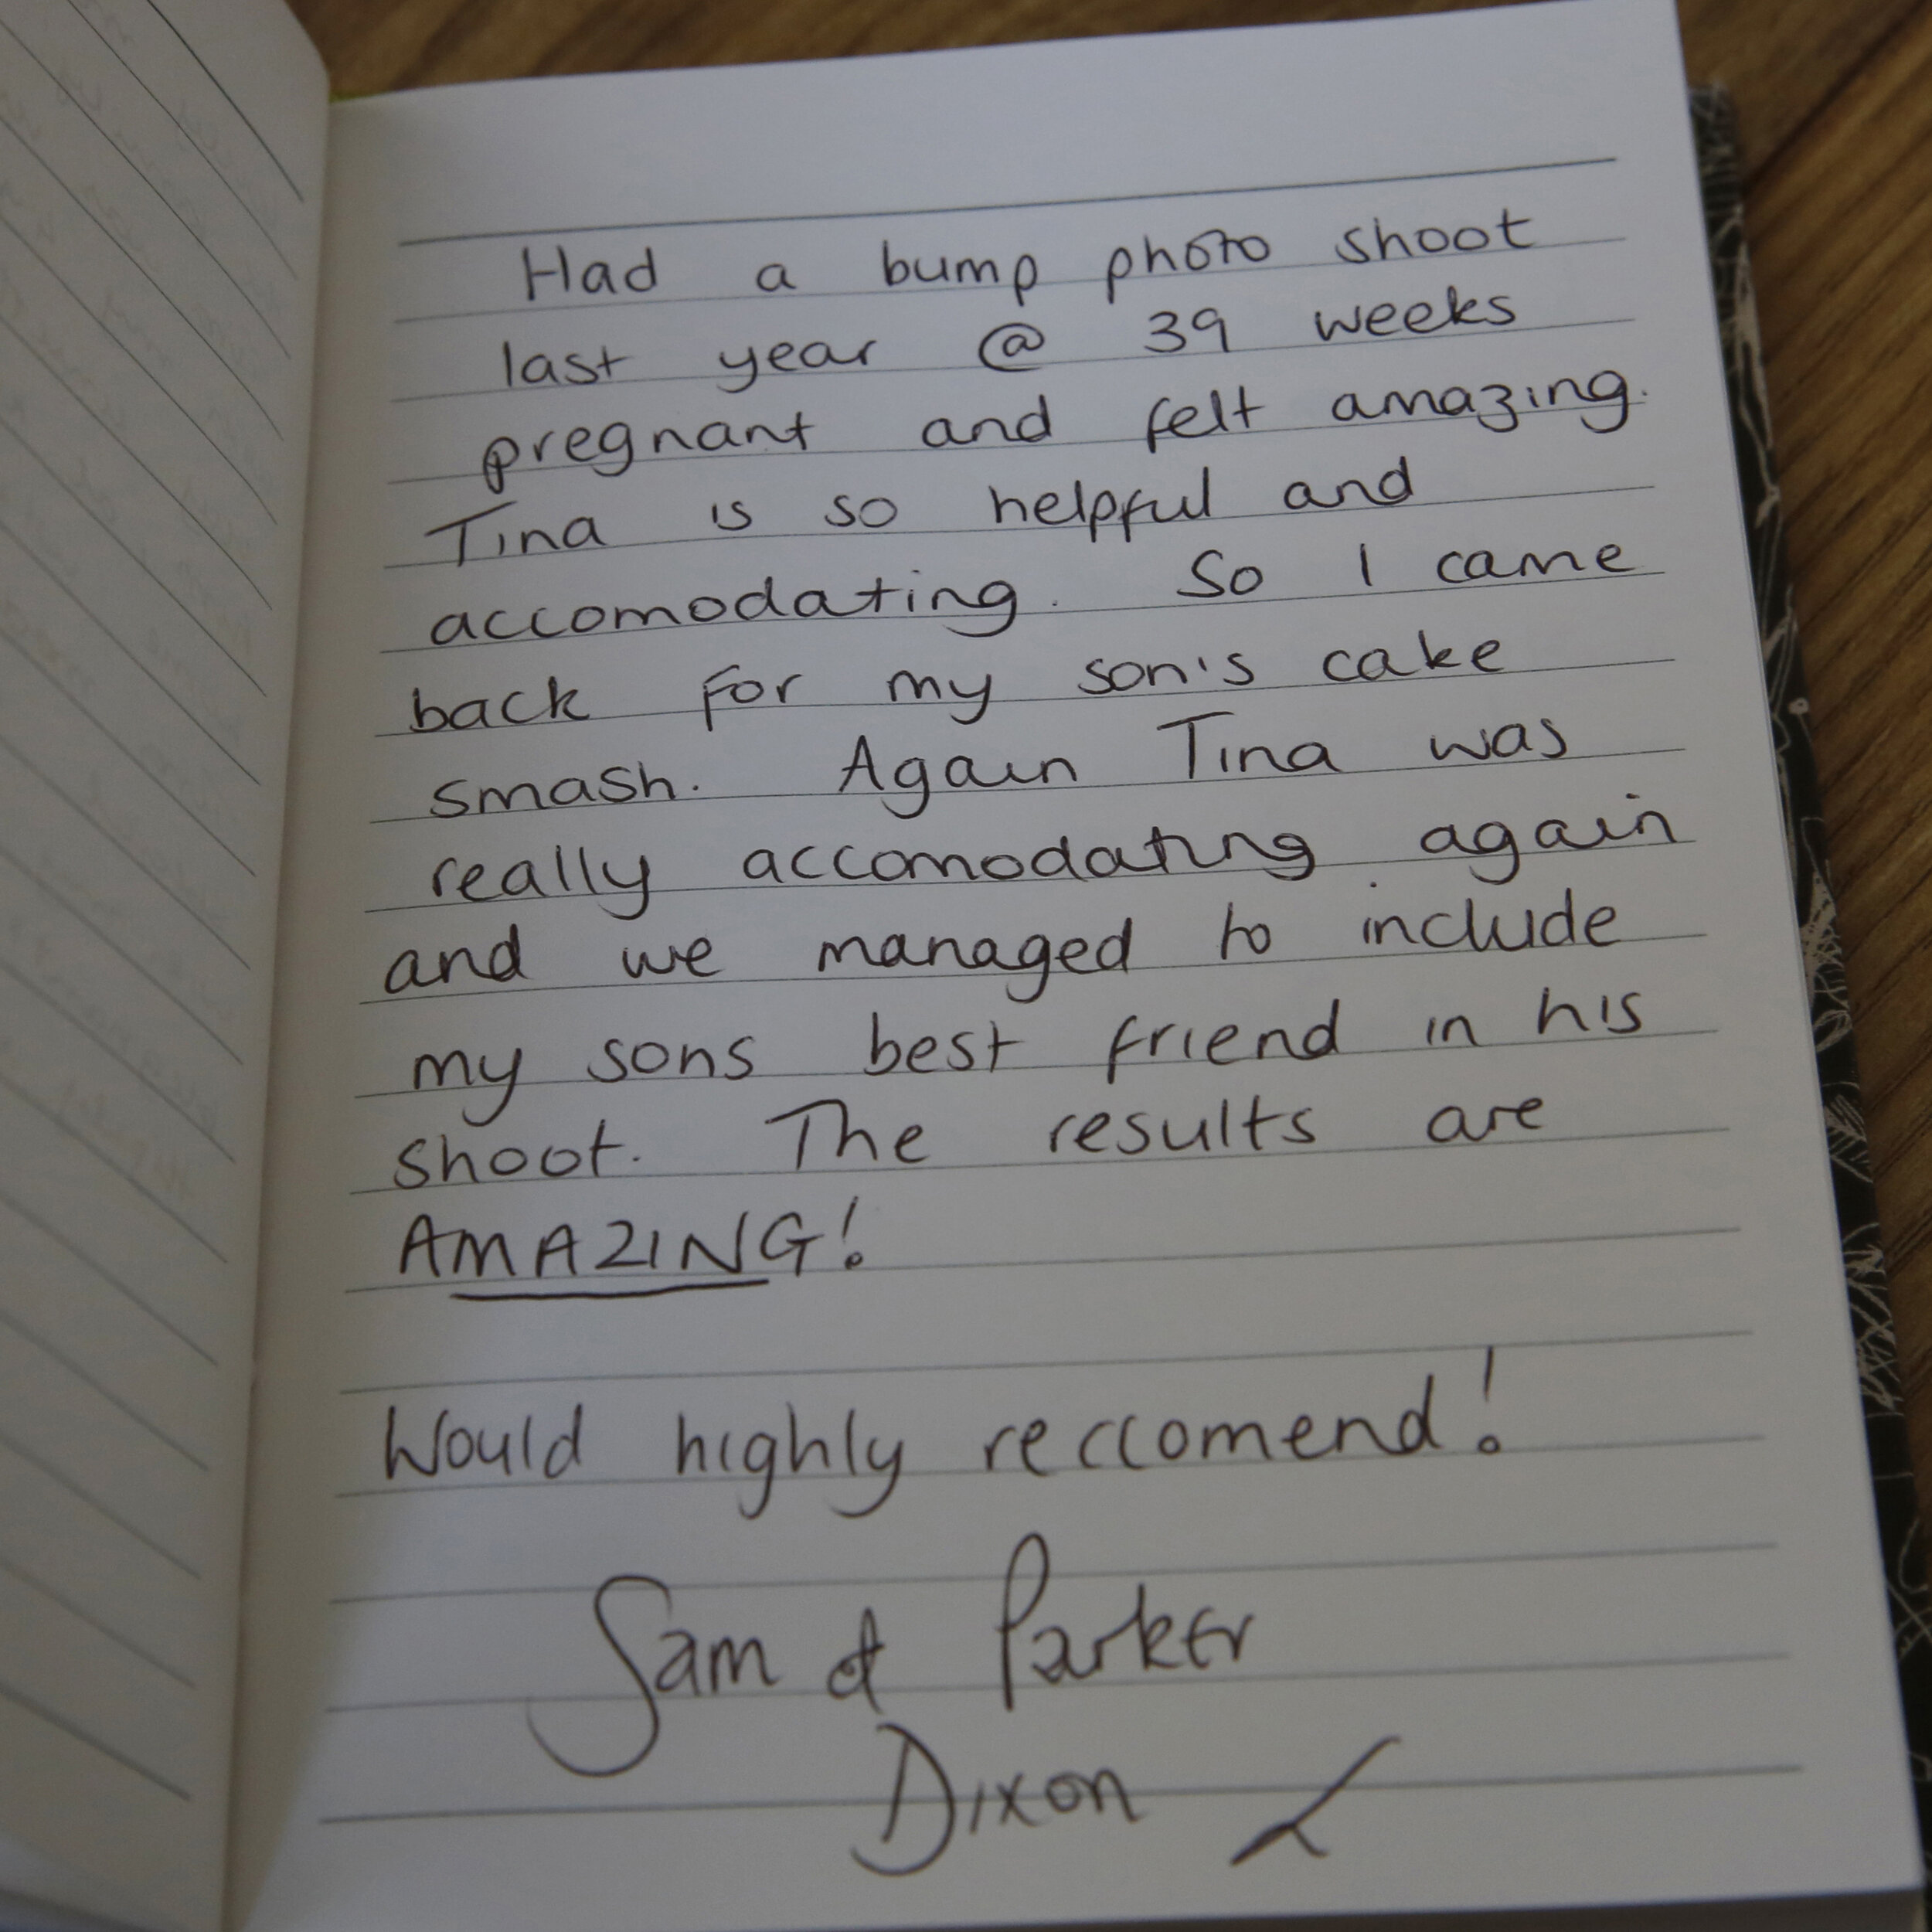 Had a bump photo shoot
last year @ 39 weeks
pregnant and felt amazing.
Tina is so helpful and
accomodating. So I came
back for my son's cake
smash. Again Tina was
really accomodating again
and we managed to include
my sons best friend in his
shoot. The results are
AMAZING!
Would highly reccomend!
Sam & Parker
Dixon x